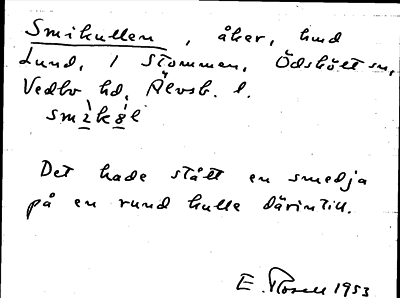 Smikullen, åker, hmd
Lund, 1 Stommen, Ödskölt sn,
Vedbo hd, Älvsb. l.
smìkál
Det hade stått en smedja
på en rund kulle därintill.
E. Rosell 1953